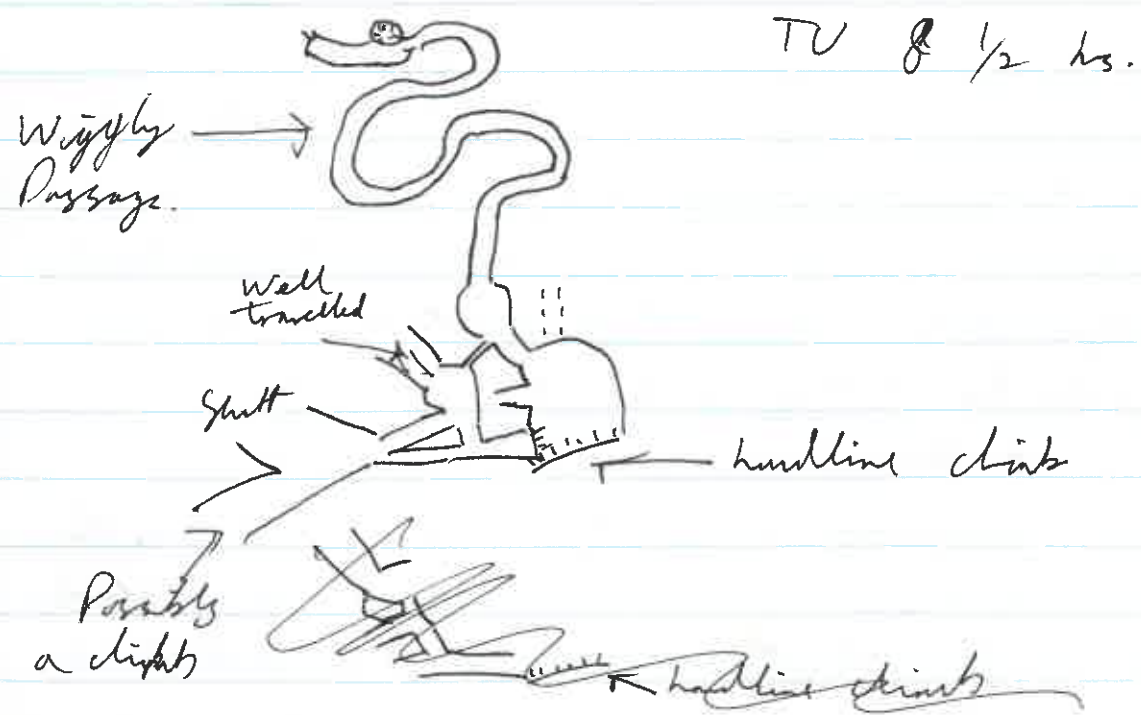 TU 8 1/2 hrs.
Wiggly
Passage.
Well
travelled
Shaft
handline climb
Possibly
a climb
handline climb